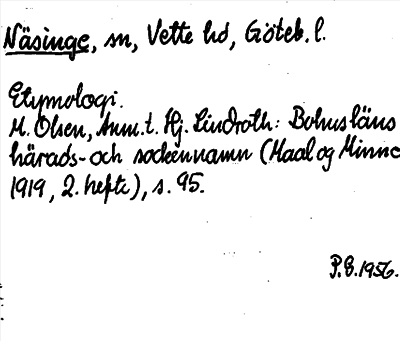 Näsinge, sn, Vette hd, Göteb. l.
Etymologi.
M. Olsen, Anm. t. Hj. Lindroth: Bohusläns
härads- och sockennamn (Maal og Minne
1919, 2. hefte), s. 95.
P.G. 1956.